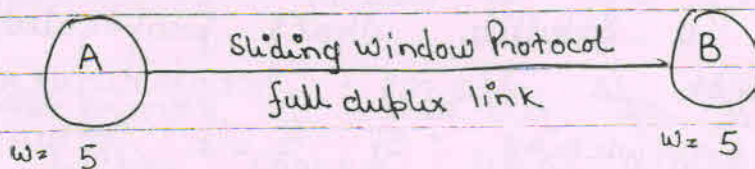 A
Sliding Window Protocol
B
full duplex link
W= 5
W= 5